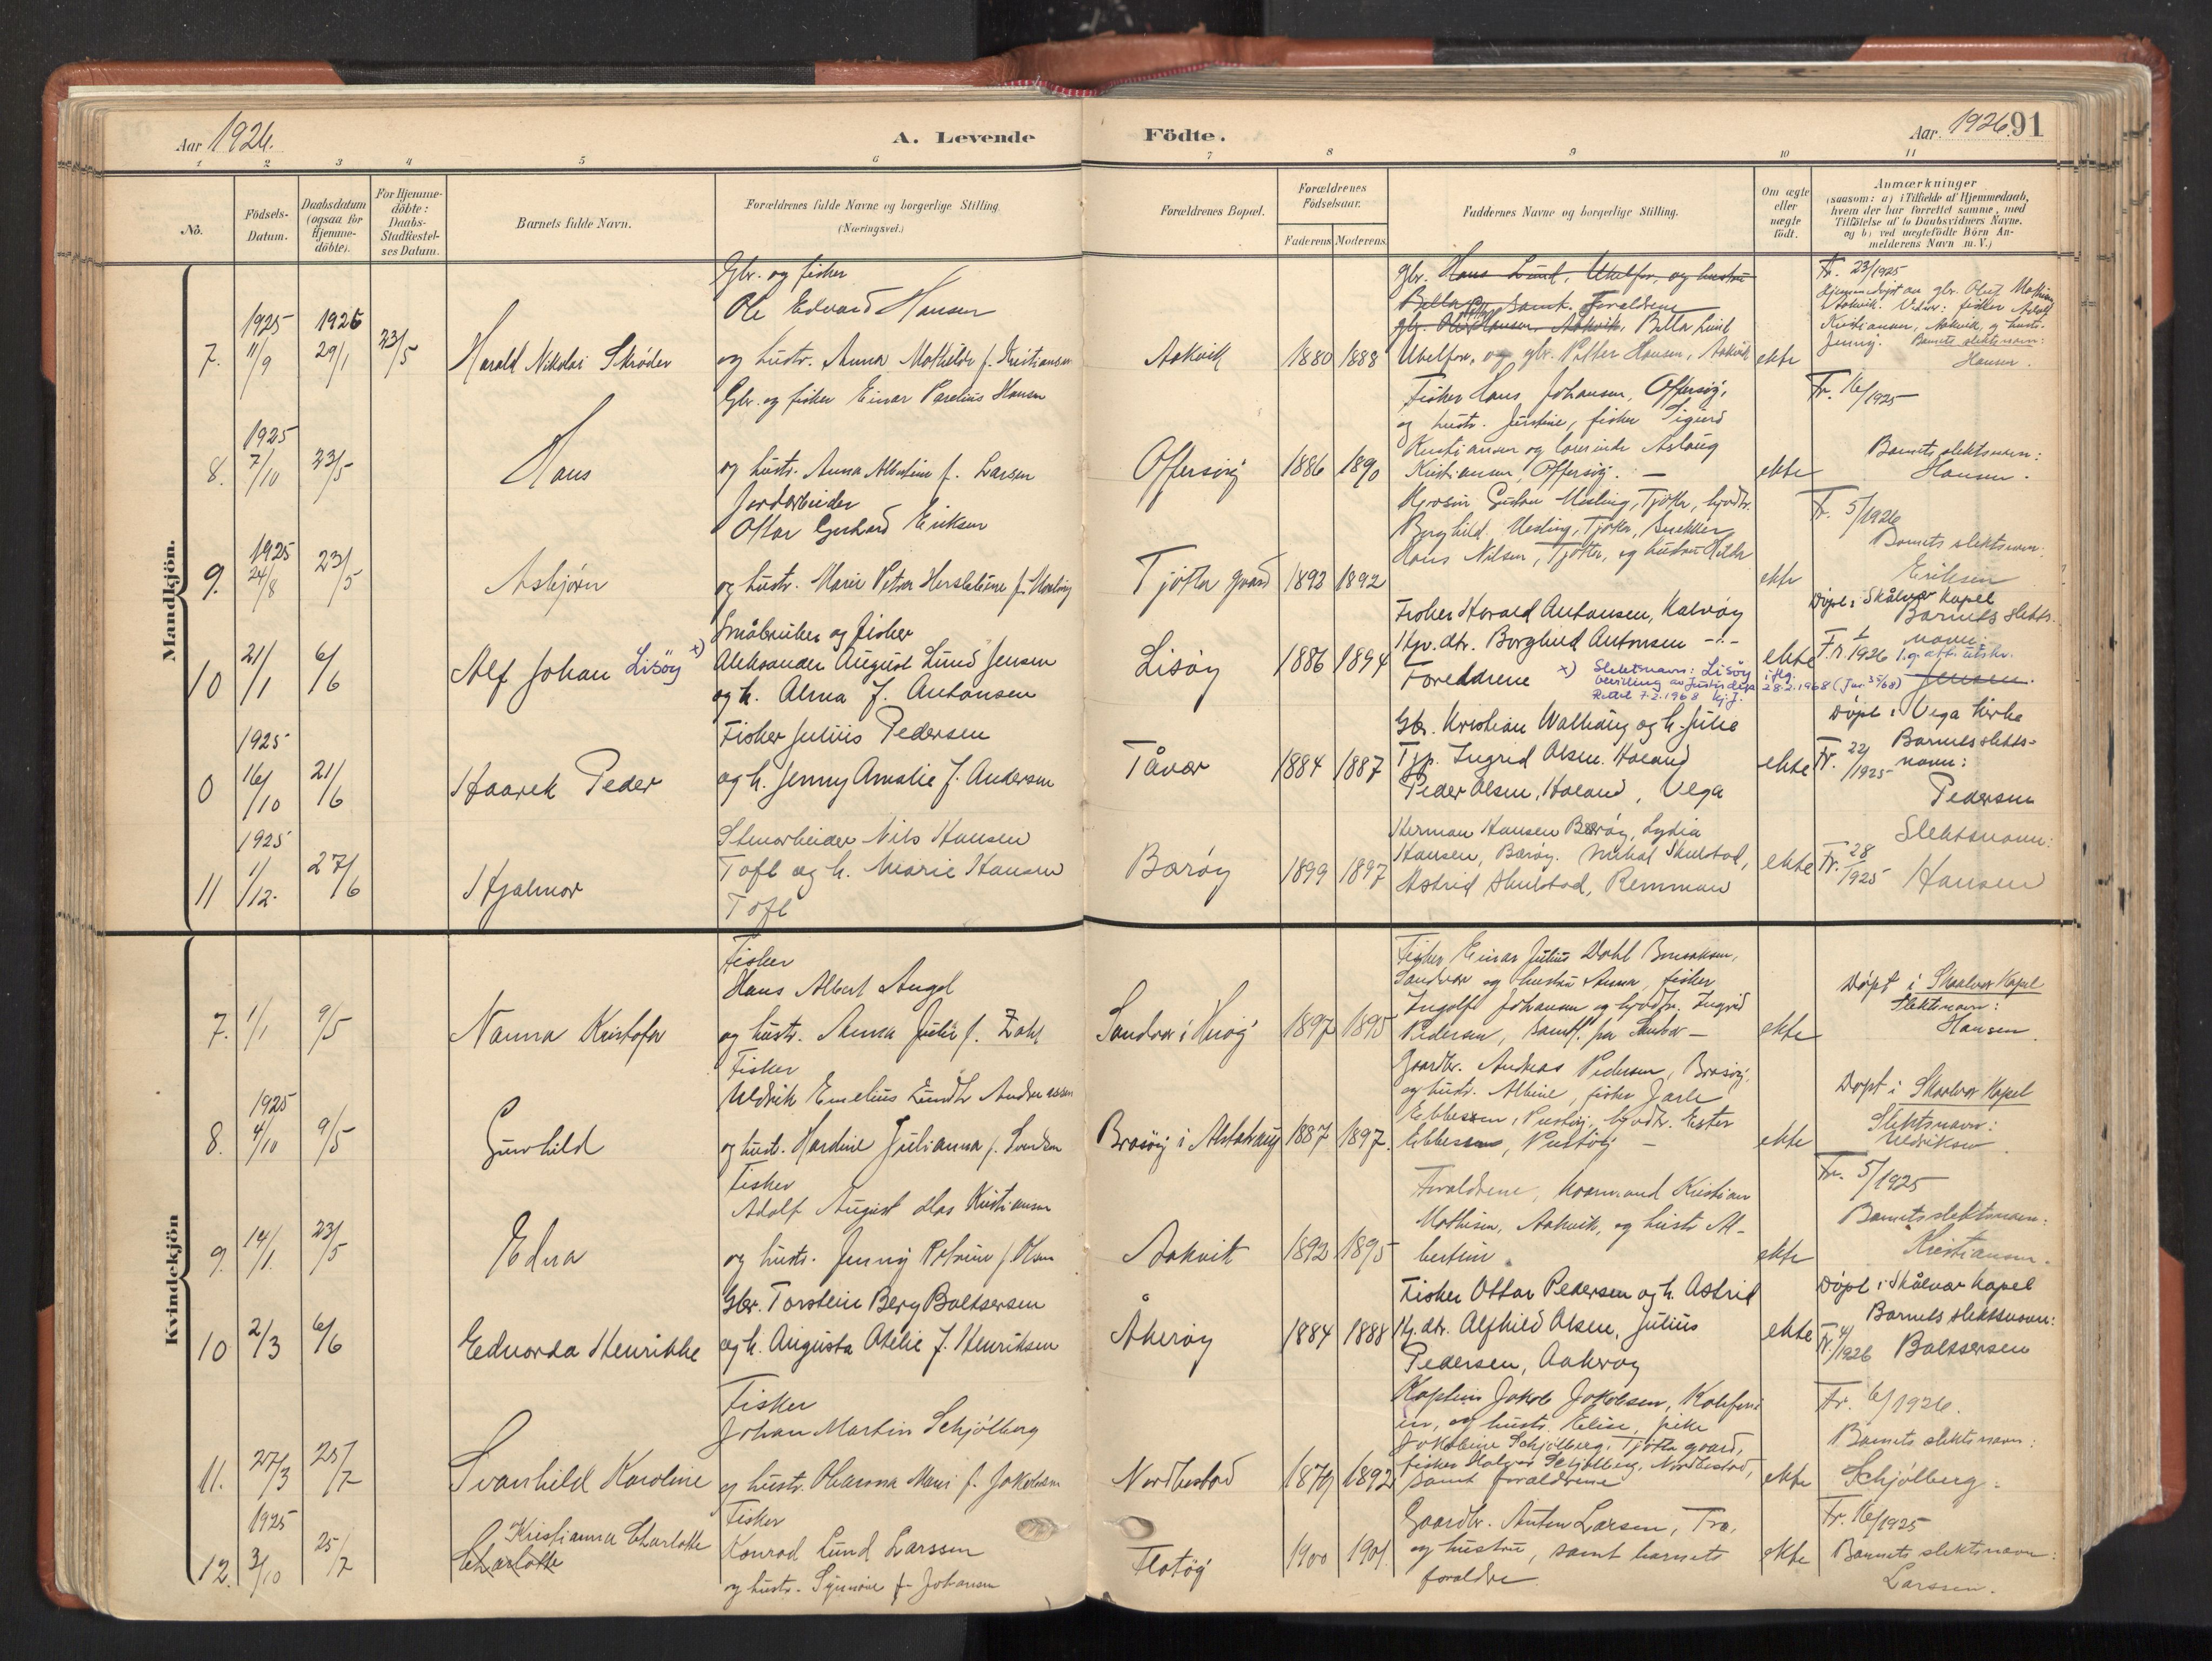 Aar 1926.
A. Levende
Födte.
Aar. 1926. 91
1 2 3 4 5 6 7 8 9 10 11
No.
Födsels-
Datum.
Daabsdatum
(ogsaa for
Hjemme-
döbte).
For Hjemme-
döbte:
Daabs-
Stadfæstel-
ses Datum.
Barnets fulde Navn.
Forældrenes fulde Navne og borgerlige Stilling.
(Næringsvei.)
Forældrenes Bopæl.
Forældrenes
Födselsaar.
Faderens Moderens
Faddernes Navne og borgerlige Stilling.
Om ægte
eller
uægte
födt.
Anmærkninger
(saasom: a) i Tilfælde af Hjemmedaab,
hvem der har forrettet samme, med
Tilföielse af to Daabsvidners Navne.
og b) ved uægtefödte Börn An-
melderens Navn m. V.)
Mandkjön.
7.
1925
11/9
1926
29/1
23/5
Harald Nikolai Skrøder
Gbr. og fisker
Ole Edvard Hansen
og hustr. Anna Mathilde f. Kristiansen
Aakvik
1880 1888
gbr. Hans Lund, Utelfor, og hustru
Bella, samt Foreldrene
Bella Lund
Utelfor, og gbr. Petter Hansen, Aakvik
ekte
Fr. 23/1925
Hjemmedøpt av gbr. Oluf Mathisen
Aakvik. Vidner: fisker Adolf
Kristiansen, Aakvik, og hustr.
Jenny. Barnets slektsnavn:
Hansen.
8.
1925
7/10
23/5
Hans
Gbr. og fisker Einar Parelius Hansen
og hustr. Anna Albertine f. Larsen
Offersøy
1886 1890
Fisker Hans Johansen, Offersøy,
og hustr. Justine, fisker Sigurd
Kristiansen og lærerinde Aslaug
Kristiansen, Offersøy. —
ekte
Fr. 16/1925
Barnets slektsnavn:
Hansen.
9.
1925
24/8
23/5
Asbjørn
Jordarbeider
Ottar Gerhard Eriksen
og hustr. Marie Petra Hersleine f. Mesling
Tjøtta gaard
1892 1892
Gustav Mesling, Tjøtta, hyvdtr.
Borghild Mesling, Tjøtta, snekker
Hans Nilsen, Tjøtta, og hustru
ekte
Fr. 5/1926
Barnets slektsnavn:
Eriksen
10
21/1
6/6
Alf Johan Lisöy x)
Småbruker og fisker
Aleksander August Lund Jensen
og h. Alma f. Antonsen
Lisøy
1886 1894
Fisker Harald Antonsen, Kalvøy
Hgv. dtr. Borghild Antonsen -:-
Foreldrene
x) Slektsnavn: Lisöy iflg.
bevilling av Justisdep. 28.2.1968 (Jnr. 35/68)
ekte
Døpt i Skålvær Kapel
Barnets slekts-
navn:
F.r. 1/1926
Jensen.
0
1925
16/10
21/6
Haarek Peder
Fisker Julius Pedersen
og h. Jenny Amalie f. Andersen
Tåvær
1884 1887
Gbr. Kristian Walhaug og h. Julie
Tjp. Ingrid Olsen. Holand
Peder Olsen, Holand, Vega
ekte
Døpt i Vega kirke
Fr. 22/1925
Barnets slekts-
navn:
Pedersen
11
1925
1/12.
27/6
Hjalmar
Stenarbeider Nils Hansen
Toft og h. Marie Hansen
Toft
Barøy
1899 1897
Herman Hansen Barøy, Lydia
Hansen, Barøy. Mikal Skulstad,
Astrid Skulstad, Remman
ekte
Fr. 28/1925
Slektsnavn:
Hansen
Kvindekjön
7.
1/1
9/5
Nanna Kristofa
Fisker
Hans Albert Angel
og hustr. Anna Julie f. Zahl
Sandvær i Herøy
1897 1895
Fisker Einar Julius Dahl
Sandvær og hustru Anna, fisker
Ingolf Johansen og hyvdtr. Ingrid
Pedersen, samtl. fra Sandvær —
ekte
Døpt i Skaalvær Kapel
Slektsnavn:
Hansen
8.
1925
4/10
9/5
Gunhild
Fisker
Uldrik Emelius Lundh Andreassen
og hustr. Hardine Julianna f. Svendsen
Brasøy i Alstahaug
1887 1897.
Gaardbr. Andreas Pedersen, Brasøy,
og hustr. Albine, fisker Jarle
Ebbesen, hyvdtr. Ester
Ebbesen —
ekte
Døpt i Skaalvær Kapel
Slektsnavn:
Uldriksen
9.
14/1.
23/5
Edna
Fisker
Adolf August Kristiansen
og hustr. Jenny Petrine f. Olsen
Aakvik
1892 1895
Foreldrene, Kaarmand Kristian
Mathisen, Aakvik, og hustr. Al-
bertine.
ekte
Fr. 5/1925
Barnets slektsnavn:
Kristiansen.
10
2/3
6/6
Eduarda Henrikke
Gbr. Torstein Berg Baltsersen
og h. Augusta Otelie f. Henriksen
Åkerøy
1884 1888
Fisker Ottar Pedersen og h. Astrid
Hg. dtr. Alfhild Olsen, Julius
Pedersen, Aakerøy
ekte
Døpt i Skålvær Kapel
Barnets slektsnavn:
Fr. 4/1926 Baltsersen
11.
27/3
25/7
Svanhild Karoline
Fisker
Johan Martin Schjølberg
og hustr. Oharna Marie f. Jakobsen
Nordbustad
1879 1892
Kaptein Jakob Jakobsen,
og hustr. Elise, pike
Jakobine Schjølberg, Tjøtta gaard,
fisker Halvar Schjølberg, Nordbustad,
samt foreldrene
ekte
Fr. 6/1926.
Barnets slektsnavn:
Schjølberg.
12.
1925
3/10
25/7
Kristianna Charlotte
Charlotte
Fisker
Konrad Lund Larssen
og hustr. Synnøve f. Johansen
Flotøy
1900 1901.
Gaardbr. Anton Larsen, Tro,
og hustru, samt barnets
foreldre
ekte
Fr. 16/1925
Barnets slektsnavn:
Larssen.